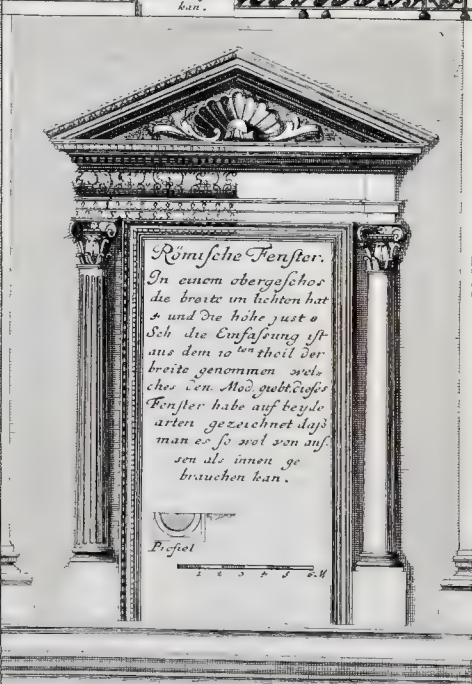 kan.
Römische Fenster.
In einem obergeschos
die breite im lichten hat
4 und die höhe just 8
Sch die Einfassung ist
aus dem 10 ten theil der
breite genommen wel¬
ches den Mod. giebt. dieses
Fenster habe auf beyde
arten gezeichnet daß
man es so wol von aus¬
sen als innen ge
brauchen kan.
Profiel
1 2 3 4 5 6 M